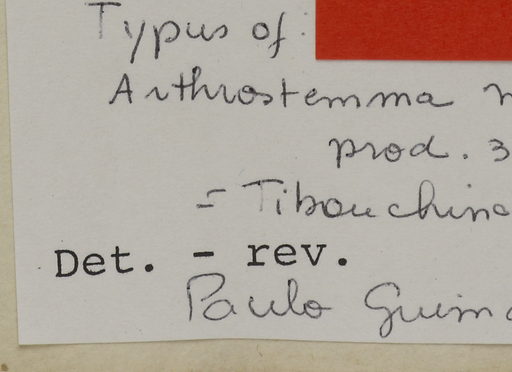 Typus of:
Arthrostemma
prod. 3
= Tibouchina
Det. - rev.
Paulo Guim